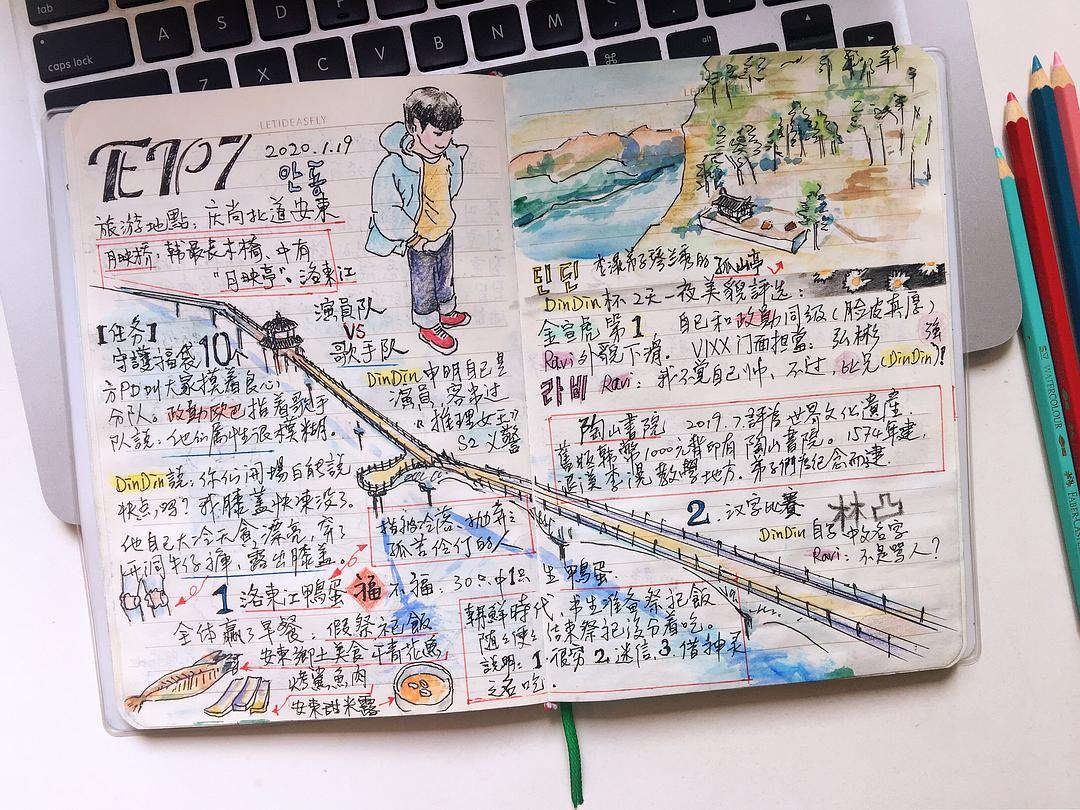 tab
caps lock
A
S
D
F
Z
X
C
V
B
N
M
alt
⌘
LETIDEASFLY
EP7
2020.1.19
안동
旅游地點:庆尚北道安東
月映桥:韩最長木橋、中有
"月映亭":洛東江
演員队
VS
歌手队
【任务】
守護福袋10个
方PD叫大家摸着良心
分队。政勳欧巴指着歌手
队說:他们属性很模糊。
DinDin申明自己是
演員,客串过
《推理女王》
S2 义警
DinDin說:你们開場白能說
快点吗?我膝盖快凍没了。
他自己大冷天貪漂亮,穿了
開洞牛仔褲,露出膝盖。
指被冷落、抛弃之
孤苦伶仃的人
1 洛東江鴨蛋 福 不福:30只中1只 生鴨蛋.
全体赢了早餐:假祭祀飯
安東鄉土美食-干青花魚,
烤鯊魚肉
安東甜米露
朝鮮時代,书生准备祭祀飯
随之便之 结束祭祀後分着吃。
說明:1.很穷 2.迷信 3.借神灵
之名吃.
LETIDEASFLY
孤山亭
딘딘
DinDin杯2天一夜美貌評选:
金宣虎第1,自己和政勳同級(脸皮真厚)
Ravi外貌下滑. VIXX门面担當:弘彬 強
라비 Ravi:我不覚自己帅,不过,比兄(DinDin)!
陶山書院 2019.7.評咅世界文化遺産.
舊版韩幣1000元背印有陶山書院。1574年建,
退溪李滉教學地方.弟子們為纪念而建.
2 汉字比賽 林凸
DinDin自己中文名字
Ravi:不是罵人?
WATERCOLOUR
FABER-CAS